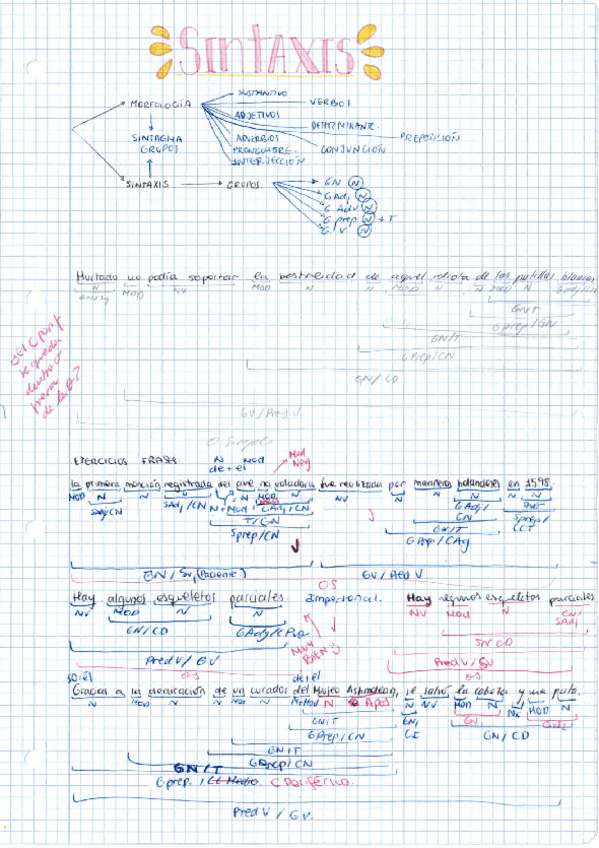 SINTAXIS
MORFOLOGÍA
SUSTANTIVO
VERBOS
ADJETIVOS
DETERMINANTE.
PREPOSICIÓN
ADVERBIOS
CONJUNCIÓN
INTERJECCIÓN
SINTAGMA
GRUPOS
SINTAXIS
GRUPOS
GN N
GAdj N
GAdv N
Gprep N + T
GV N
Hurtado no podía soportar la bestialidad de aquel idiota de las patillas blancas
N MOD NV MOD N N MOD N N MOD N
GN/T
Gprep/CN
GN/T
GPrep/CN
GN/CD
GV/Pred V
O Simple
EJERCICIOS FRASES:
N Mod
de + el
Mod
Neg
la primera mención registrada del ave no voladora fue realizada por marineros holandeses en 1598.
MOD N N N N MOD N
SAdj/CN SAdj/CN N + Mod GAdj/CN
GAdj/
CN
T/CN GN/T
Sprep/
CCT
Sprep/CN
GPrep/CAg
GN/Suj (Paciente) GV/Pred V
OS
Hay algunos esqueletos parciales. Impersonal. Hay algunos esqueletos parciales
NV MOD N N
NV Mod N CN/
SAdj
GN/CD GAdj/CPvo
MUY
BIEN
SN CD
Pred V/GV Pred V/GV
OS OS
de+el
Gracias a la dedicación de un curador del Museo Ashmolean, se salvó la cabeza y una pata.
N N MOD N N MOD N N+Mod N Apos N NV MOD N Nx MOD N
GN/T GN/ GN1 GN2
GPrep/CN CI GN/CD
GN/T
GPrep/CN
GN/T
Gprep. / CC Medio. C Periférico.
Pred V/GV.